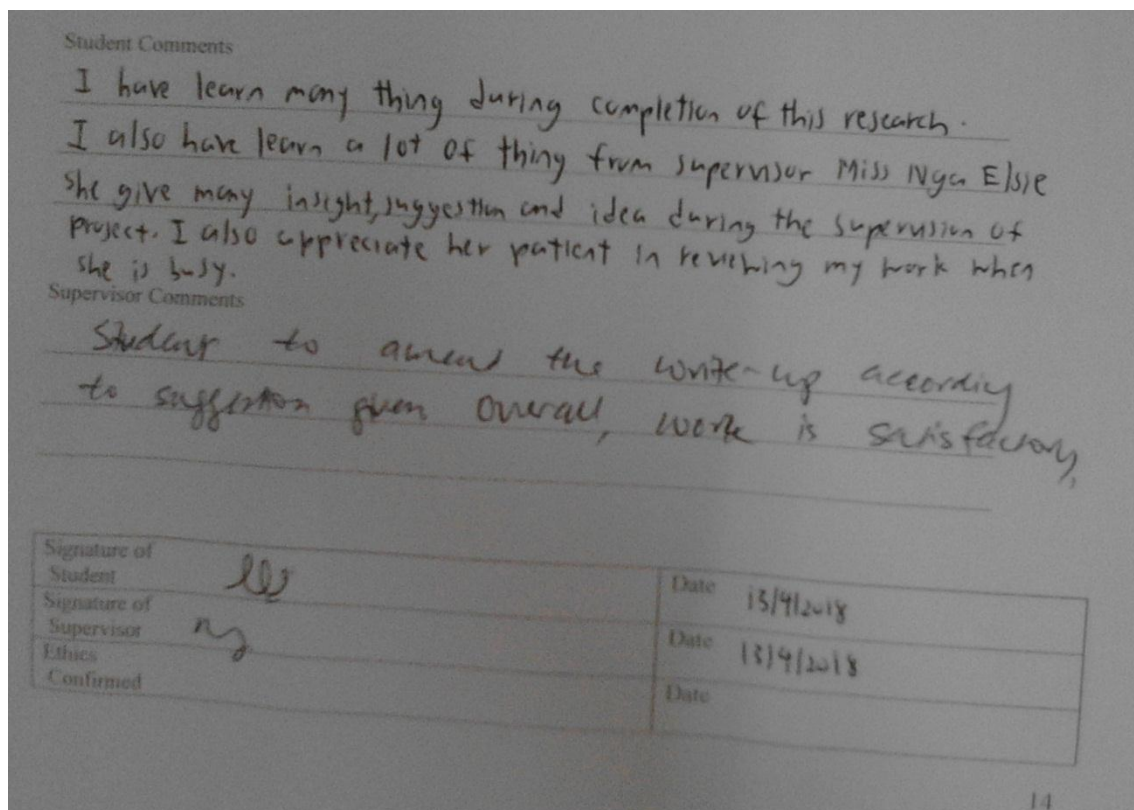 Student Comments
I have learn many thing during completion of this research.
I also have learn a lot of thing from supervisor Miss Nga Elsie
she give many insight, suggestion and idea during the supervision of
project. I also appreciate her patient in reviewing my work when
she is busy.
Supervisor Comments
Student to amend the write-up according
to suggestion given Overall, work is satisfactory.
Signature of
Student
Date 13/4/2018
Signature of
Supervisor
Date 13/4/2018
Ethics
Confirmed
Date